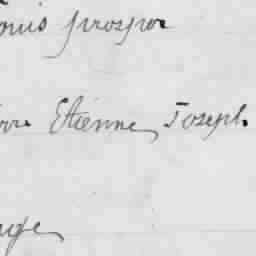 ouis prosper
rre Etienne Joseph.
uge